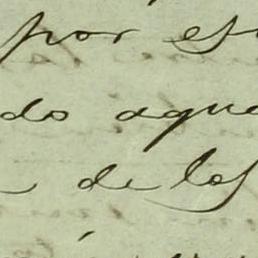 por es
do aque
de los